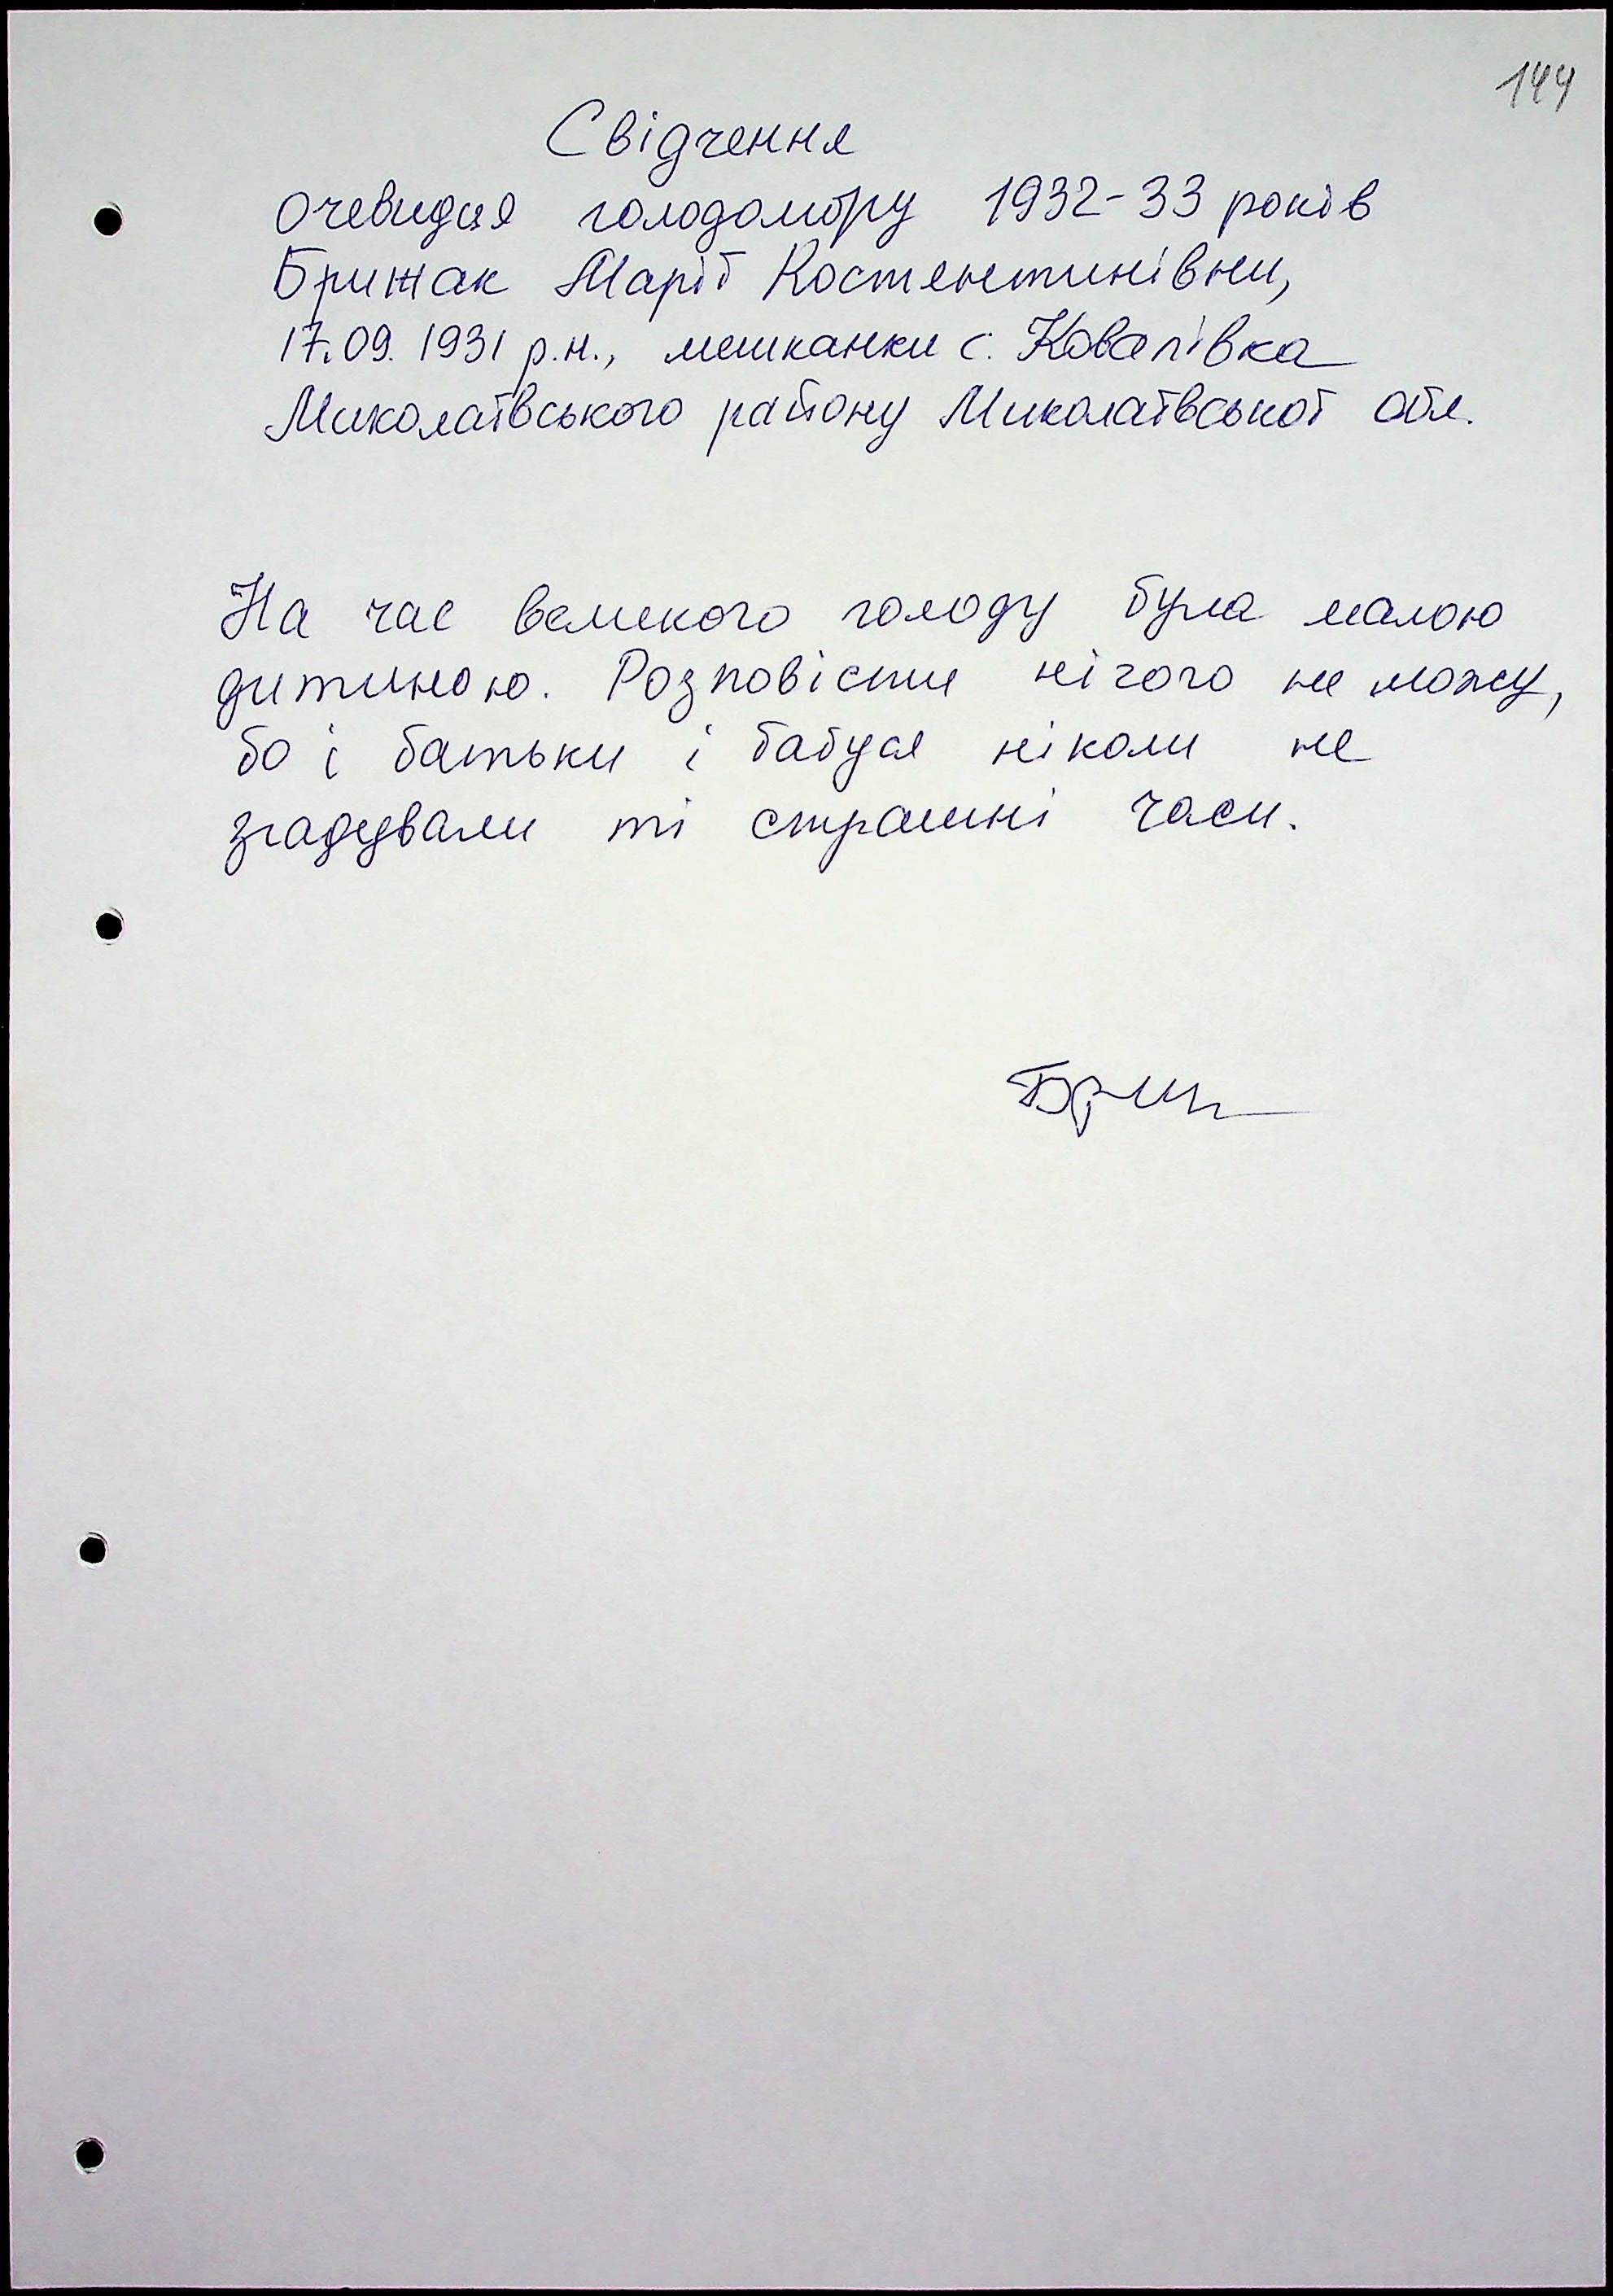 144
Свідчення
очевидця голодомору 1932-33 років
Брижак Марії Костянтинівни,
17.09.1931 р.н., мешканки с. Ковалівка
Миколаївського району Миколаївської обл.
На час великого голоду була малою
дитиною. Розповісти нічого не можу,
бо і батьки і бабуся ніколи не
згадували ті страшні часи.